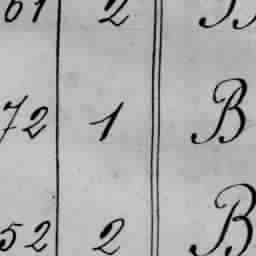 61 2
72 1 B
52 2 B